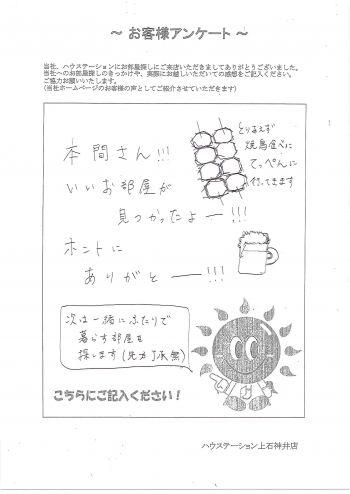 ～ お客様アンケート ～
当社、ハウステーションにお部屋探しにご来店いただきましてありがとうございました。
当社へのお部屋探しのきっかけや、実際にお越しいただいての感想をご記入ください。
ご協力お願いいたします。
(当社ホームページのお客様の声としてご紹介させていただきます)
本間さん!!!
いいお部屋が
見つかったよー!!!
ホントに
ありがとー!!!
とりあえず
焼鳥食べに
てっぺんに
行ってきます
次は一緒にふたりで
暮らす部屋を
探します(先方了承無)
こちらにご記入ください！
ハウステーション上石神井店